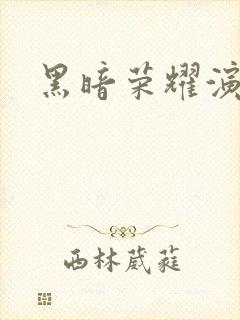 黑暗荣耀演
西林葳蕤